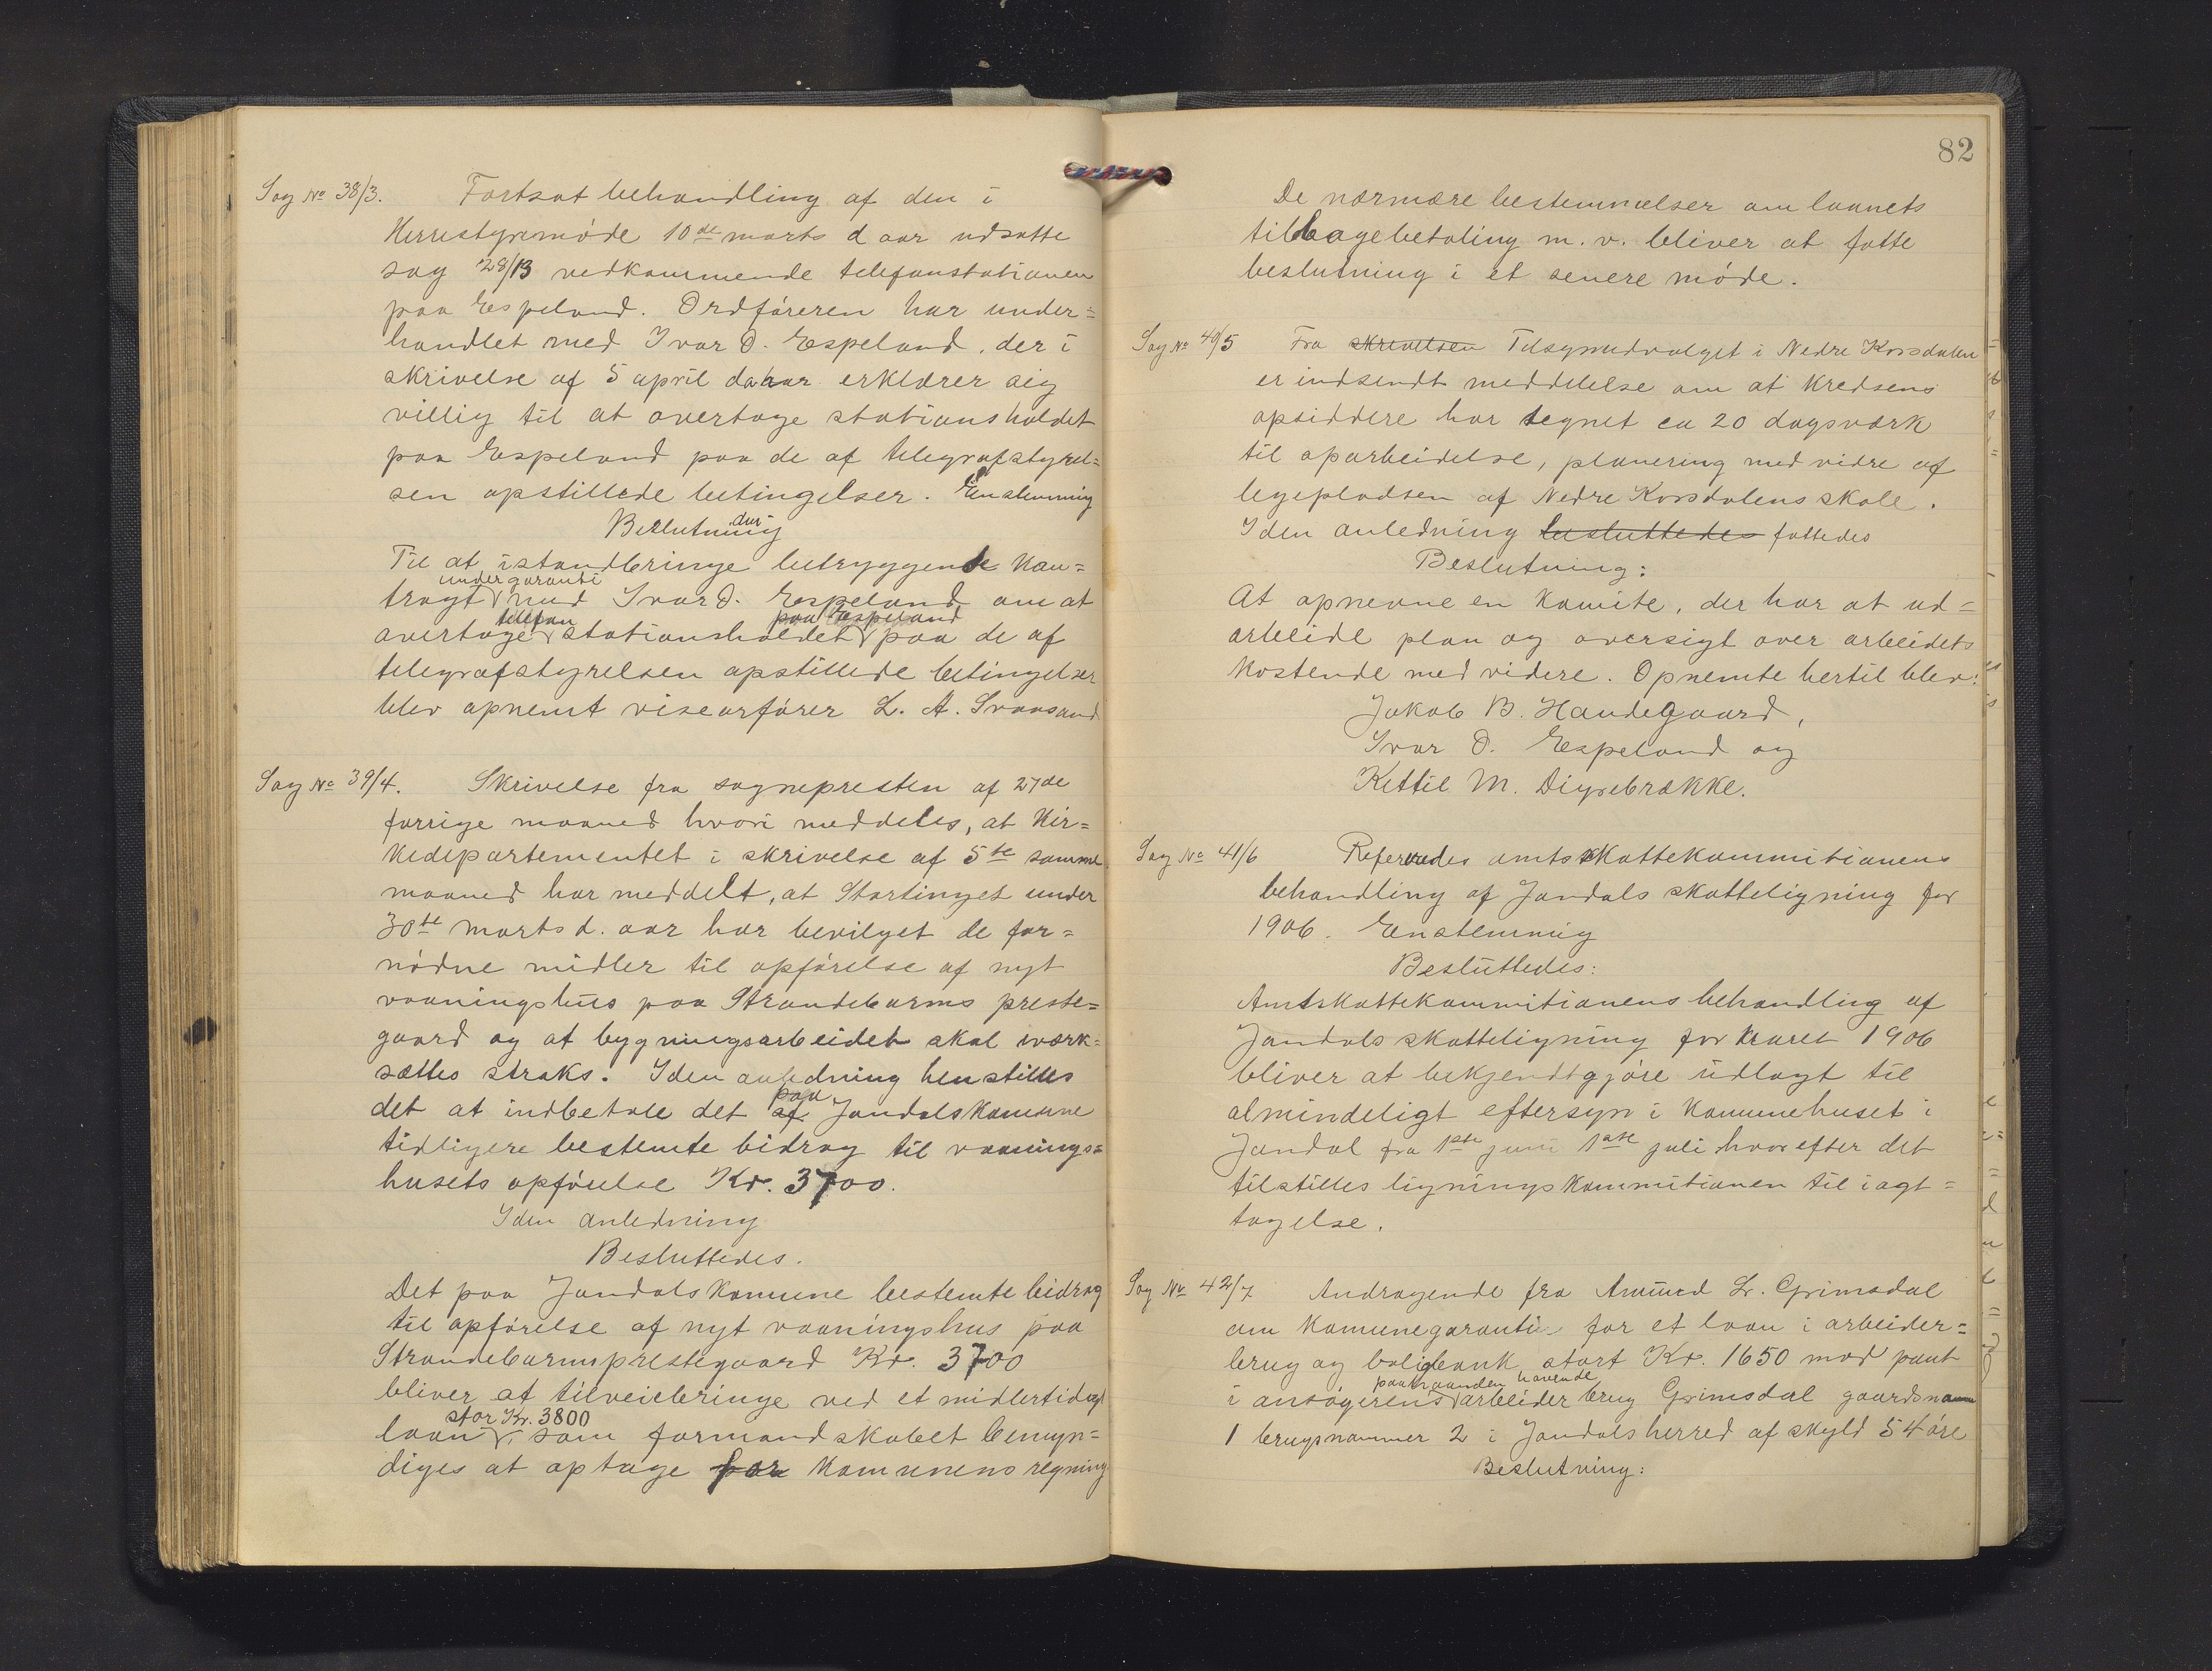 Sag No 38/3. Fortsat behandling af den i
Herrestyremøde 10de marts d aar udsatte
sag 28/13 vedkommende telefonstationen
paa Espeland. Ordføreren har under=
handlet med Ivar O. Espeland, der i
skrivelse af 5 april da aar erklærer sig
villig til at overtage stationsholdet
paa Espeland paa de af telegrafstyrel=
sen opstillede betingelser. Enstemmig
Beslutning
Til at istandbringe betryggende Kon=
under garanti
tragt med Ivar O. Espeland om at
telefon paa Espeland
overtage stationsholdet paa de af
telegrafstyrelsen opstillede betingelser
blev opnemt viseorfører L. A. Svaasand
Sag No 39/4. Skrivelse fra sognepresten af 27de
forrige maaned hvori meddeles, at Kir=
kedepartementet i skrivelse af 5te samme
maaned har meddelt, at Stortinget under
30te marts d. aar har bevilget de for=
nødne midler til opførelse af nyt
vaaningshus paa Strandebarms preste=
gaard og at bygningsarbeidet skal iværk=
sættes straks. I den anledning henstilles
paa
det at indbetale det af Jondals Komune
tidligere bestemte bidrag til vaanings=
husets opførelse Kr. 3700.
I den anledning
Besluttedes.
Det paa Jondals Komune bestemte bidrag
til opførelse af nyt vaaningshus paa
Strandebarms prestegaard Kr. 3700
bliver at tilveiebringe ved et midlertidigt
stor Kr. 3800
laan, som formandskabet bemyn=
diges at optage for Komunens regning
82
De nærmere bestemmelser om laanets
tilbagebetaling m. v. bliver at fatte
beslutning i et senere møde.
Sag No 40/5 Fra skrivelsen Tilsynsudvalget i Nedre Krosdalen
er indsendt meddelelse om at Kredsens
opsiddere har tegnet ca 20 dagsværk
til oparbeidelse, planering med vidre af
legepladsen af Nedre Krosdalens skole.
I den anledning besluttedes fattedes
Beslutning:
At opnevne en Komite, der har at ud=
arbeide plan og oversigt over arbeidets
Kostende med videre. Opnemte hertil blev:
Jakob B. Handegaard,
Ivar O. Espeland og
Kettil M. Digrebrække.
Sag No 41/6 Refereredes amtsskattekommitionens
behandling af Jondals skatteligning for
1906. Enstemmig
Besluttedes:
Amtskattekommitionens behandling af
Jondals skatteligning for Kraret 1906
bliver at bekjendtgjøre udlagt til
almindeligt eftersyn i Komunehuset i
Jondal fra 1ste juni 1ste juli hvorefter det
tilstilles ligningskommitionen til iagt=
tagelse.
Sag No 42/7 Andragende fra Amund L. Grimsdal
om Komunegaranti for et laan i arbeider=
brug og boligbank stort Kr. 1650 mod pant
paatraanden havende
i ansøgerens arbeider brug Grimsdal gaardsnamn
1 brugsnammer 2 i Jondals herred af skyld 54 øre
Beslutning: